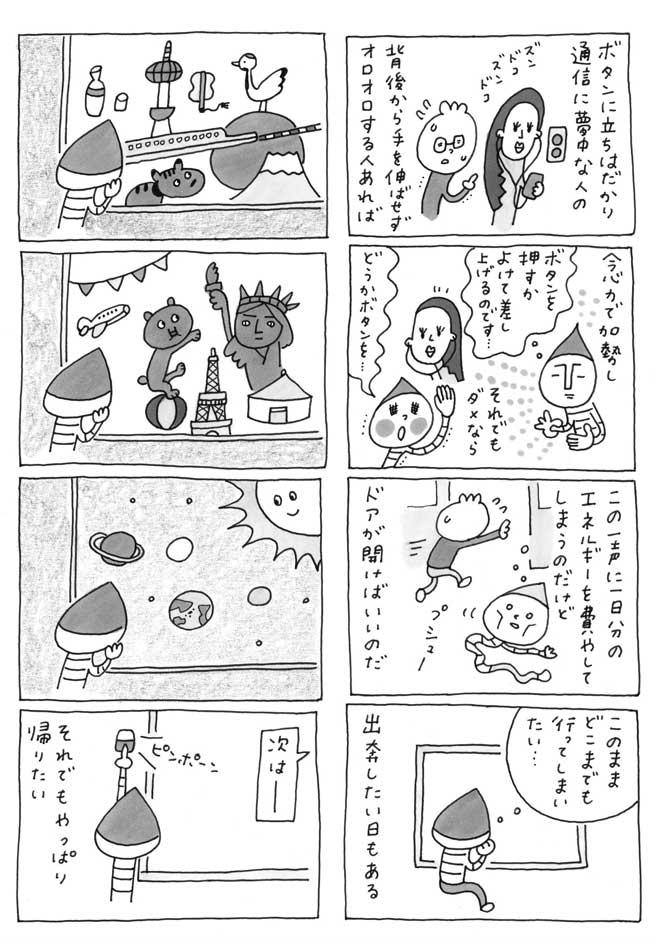 ボタンに立ちはだかり
通信に夢中な人の
ズン
ドコ
ズン
ドコ
背後から手を伸ばせず
オロオロする人あれば
念力で加勢し
ボタンを
押すか
よけて差し
上げるのです…
それでも
ダメなら
どうかボタンを…
この一声に一日分の
エネルギーを費やして
しまうのだけど
プシュー
ドアが開けばいいのだ
このまま
どこまでも
行ってしまい
たい…
出奔したい日もある
次はー
ピンポーン
それでもやっぱり
帰りたい